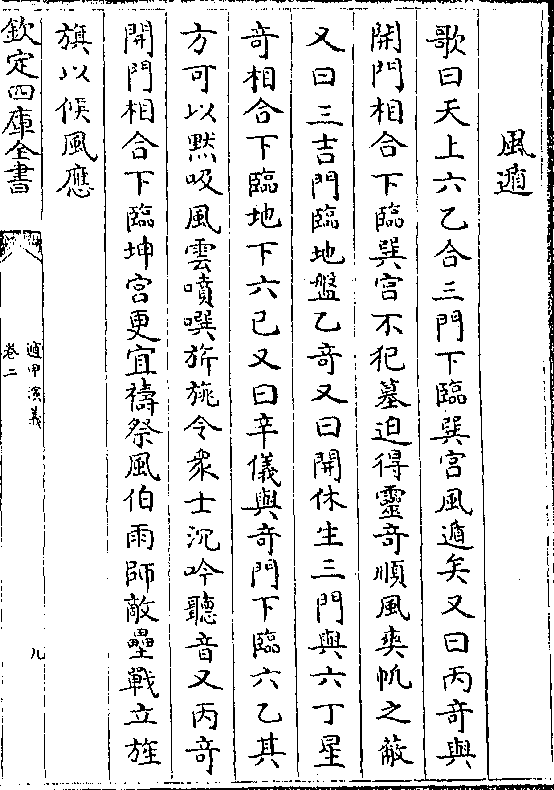 風遁
歌曰天上六乙合三門下臨巽宫風遁矣又曰丙奇與
開門相合下臨巽宫不犯墓迫得靈奇順風爽帆之蔽
又曰三吉門臨地盤乙奇又曰開休生三門與六丁星
奇相合下臨地下六己又曰辛儀與奇門下臨六乙其
方可以黙吸風雲噴噀旂旐令衆士沉吟聽音又丙奇
開門相合下臨坤宫更宜禱祭風伯雨師敵壘戰立旌
旗以候風應
欽定四庫全書
遁甲演義
卷二
九